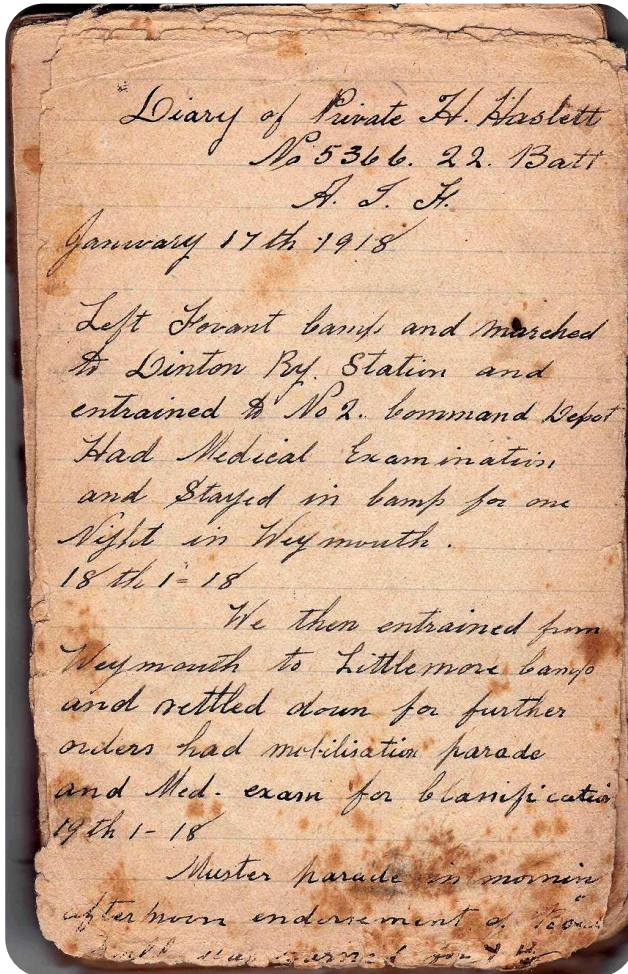 Diary of Private H. Haslett
No 5366. 22. Batt
A. I. F.
January 17th 1918
Left Fovant Camp and marched
to Dinton Ry. Station and
entrained to No 2. Command Depot
Had Medical Examination
and Stayed in Camp for one
Night in Weymouth.
18th 1=18
We then entrained from
Weymouth to Littlemore Camp
and settled down for further
orders had mobilisation parade
and Med. exam for Classification
19th 1-18
Muster parade in mornin
afternoon endorsement of